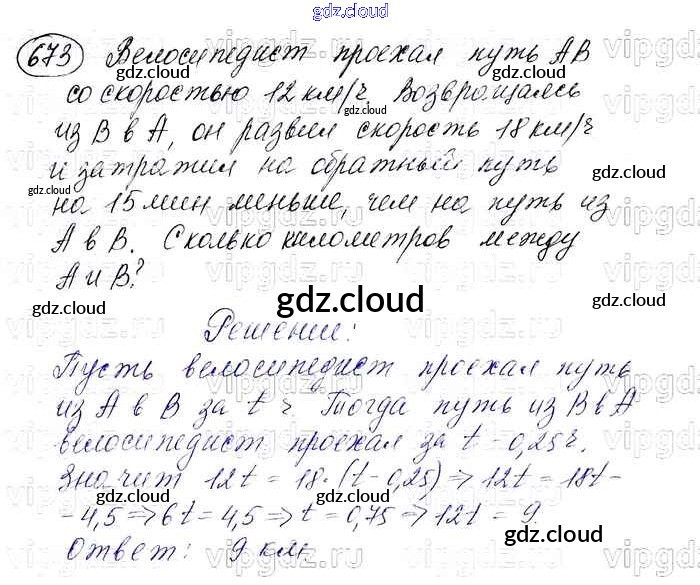 gdz.cloud
673 Велосипедист проехал путь AB
со скоростью 12 км/ч. Возвращаясь
из B в A, он развил скорость 18 км/ч
и затратил на обратный путь
на 15 мин меньше, чем на путь из
A в B. Сколько километров между
A и B?
gdz.cloud
Решение:
Пусть велосипедист проехал путь
из A в B за t ч. Тогда путь из B в A
велосипедист проехал за t - 0,25 ч.
Значит 12t = 18·(t - 0,25) => 12t = 18t -
- 4,5 => 6t = 4,5 => t = 0,75 => 12t = 9
Ответ: 9 км.